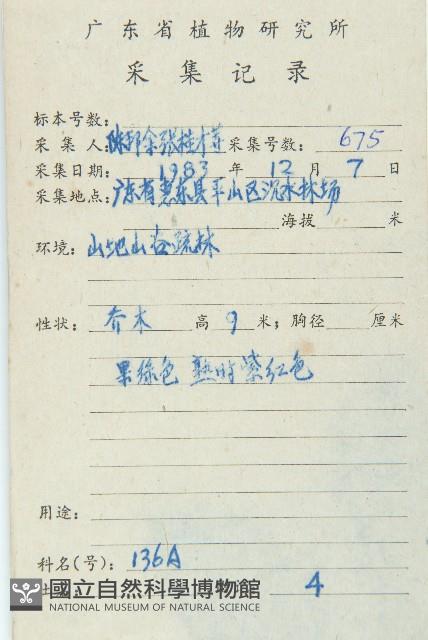 广东省植物研究所
采集记录
标本号数:
采集人:陈邦余张桂才等 采集号数:675
采集日期:1983年12月7日
采集地点:广东省惠东县平山区沉水林场
海拔 米
环境:山地山谷疏林
性状:乔木 高9米;胸径 厘米
果绿色 熟时紫红色
用途:
科名(号):136A
4
國立自然科學博物館
NATIONAL MUSEUM OF NATURAL SCIENCE